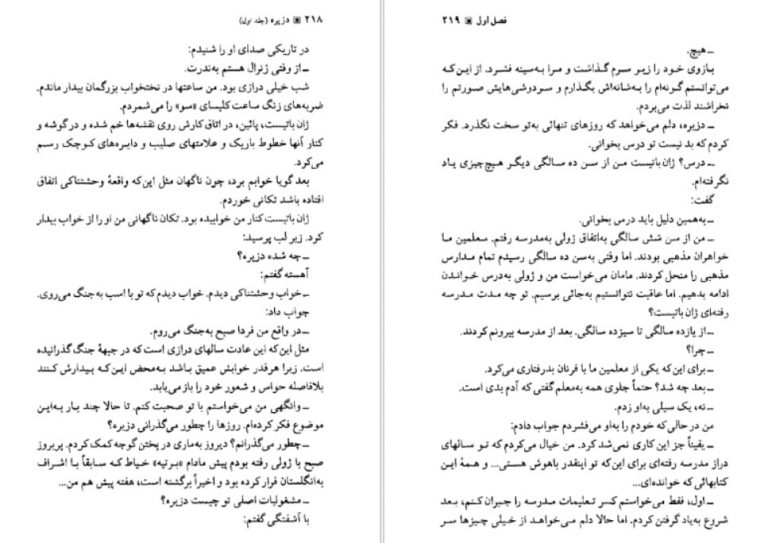 ۲۱۸ ▣ دزیره (جلد اول)
در تاریکی صدای او را شنیدم:
ــ از وقتی ژنرال هستم به‌ندرت.
شب خیلی درازی بود. من ساعتها در تختخواب بزرگمان بیدار ماندم.
ضربه‌های زنگ ساعت کلیسای «سو» را می‌شمردم.
ژان باتیست، پائین، در اتاق کارش روی نقشه‌ها خم شده و در گوشه و
کنار آنها خطوط باریک و علامتهای صلیب و دایره‌های کوچک رسم
می‌کرد.
بعد گویا خوابم برد، چون ناگهان مثل این‌که واقعهٔ وحشتناکی اتفاق
افتاده باشد تکانی خوردم.
ژان باتیست کنار من خوابیده بود. تکان ناگهانی من او را از خواب بیدار
کرد. زیر لب پرسید:
ــ چه شده دزیره؟
آهسته گفتم:
ــ خواب وحشتناکی دیدم. خواب دیدم که تو با اسب به‌جنگ می‌روی.
جواب داد:
ــ در واقع من فردا صبح به‌جنگ می‌روم.
مثل این‌که این عادت سالهای درازی است که در جبههٔ جنگ گذرانیده
است. زیرا هرقدر خوابش عمیق باشد به‌محض این‌که بیدارش کنند
بلافاصله حواس و شعور خود را باز می‌یابد.
ــ وانگهی من می‌خواستم با تو صحبت کنم. تا حالا چند بار به‌این
موضوع فکر کرده‌ام. روزها را چطور می‌گذرانی دزیره؟
ــ چطور می‌گذرانم؟ دیروز به‌ماری در پختن گوجه کمک کردم. پریروز
صبح با ژولی رفته بودم پیش مادام «برتیه» خیاط که سابقاً با اشراف
به‌انگلستان فرار کرده بود و اخیراً برگشته است، هفته پیش هم من...
ــ مشغولیات اصلی تو چیست دزیره؟
با آشفتگی گفتم:
فصل اول ▣ ۲۱۹
ــ هیچ.
بازوی خود را زیر سرم گذاشت و مرا به‌سینه فشرد. از این‌که
می‌توانستم گونه‌ام را به‌شانه‌اش بگذارم و سردوشی‌هایش صورتم را
نخراشند لذت می‌بردم.
ــ دزیره، دلم می‌خواهد که روزهای تنهائی به‌تو سخت نگذرد. فکر
کردم که بد نیست تو درس بخوانی.
ــ درس؟ ژان باتیست من از سن ده سالگی دیگر هیچ‌چیزی یاد
نگرفته‌ام.
گفت:
ــ به‌همین دلیل باید درس بخوانی.
ــ من از سن شش سالگی به‌اتفاق ژولی به‌مدرسه رفتم. معلمین ما
خواهران مذهبی بودند. اما وقتی به‌سن ده سالگی رسیدم تمام مدارس
مذهبی را منحل کردند. مامان می‌خواست من و ژولی به‌درس خواندن
ادامه بدهیم. اما عاقبت نتوانستیم به‌جائی برسیم. تو چه مدت مدرسه
رفته‌ای ژان باتیست؟
ــ از یازده سالگی تا سیزده سالگی. بعد از مدرسه بیرونم کردند.
ــ چرا؟
ــ برای این‌که یکی از معلمین ما با فرنان بدرفتاری می‌کرد.
ــ بعد چه شد؟ حتماً جلوی همه به‌معلم گفتی که آدم بدی است.
ــ نه، یک سیلی به‌او زدم.
من در حالی‌که خودم را به‌او می‌فشردم جواب دادم:
ــ یقیناً جز این کاری نمی‌شد کرد. من خیال می‌کردم که تو سالهای
دراز مدرسه رفته‌ای برای این‌که تو اینقدر باهوش هستی... و همهٔ این
کتابهائی که خوانده‌ای...
ــ اول، فقط می‌خواستم کسر تعلیمات مدرسه را جبران کنم، بعد
شروع به‌یاد گرفتن کردم. اما حالا دلم می‌خواهد از خیلی چیزها سر